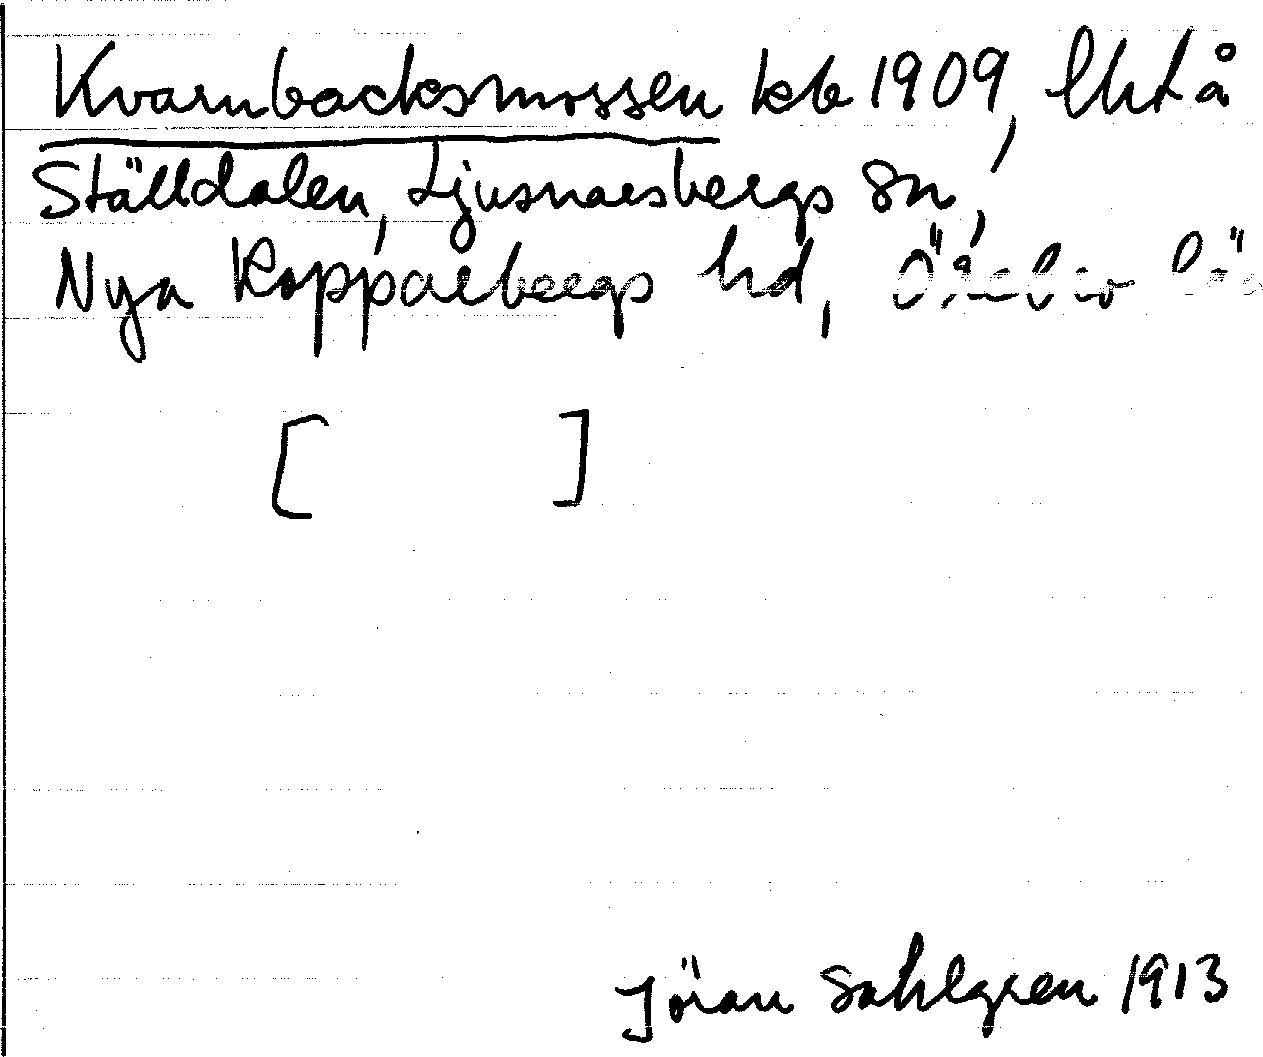 Kvarnbacksmossen kb 1909, på
Ställdalen, Ljusnarsbergs sn,
Nya Kopparbergs hd, Örebro län
[ ]
Jöran Sahlgren 1913